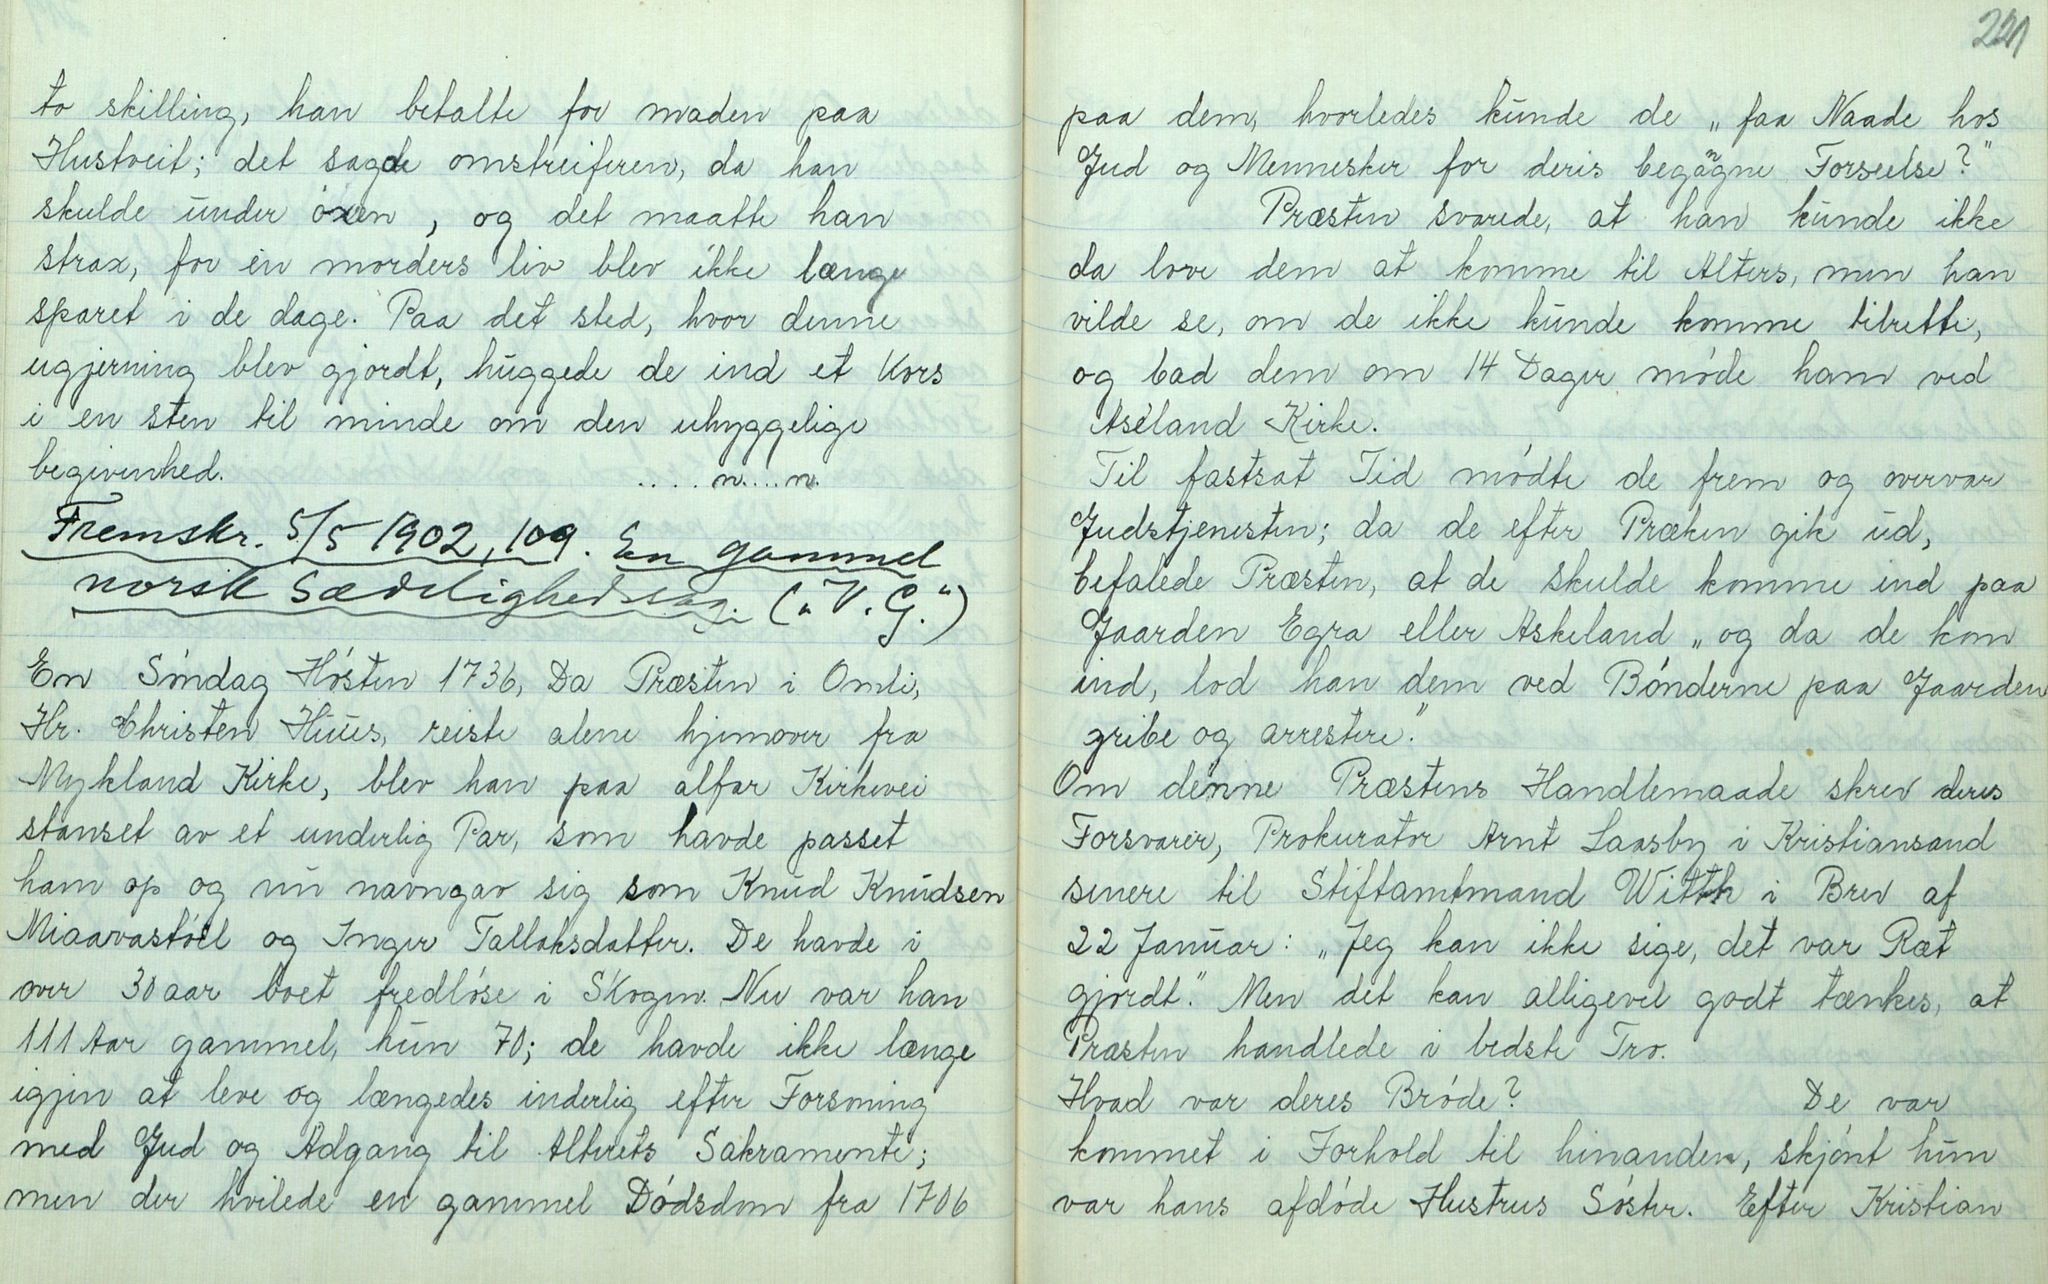 to skilling, han betalte for maden paa
Hustveit; det sagde omstreiferen, da han
skulde under öxen, og det maatte han
strax, for en morders liv blev ikke længe
sparet i de dage. Paa det sted, hvor denne
ugjerning blev gjordt, huggede de ind et Kors
i en sten til minde om den uhyggelige
begivenhed. ....n....n.
Fremskr. 5/5 1902, 109. En gammel
norsk Sædelighedssag. („V. G.“)
En Söndag Hösten 1736, Da Præsten i Omli,
Hr. Christen Huus, reiste alene hjemover fra
Mykland Kirke, blev han paa alfar Kirkevei
stanset av et underlig Par, som havde passet
ham op og nu navngav sig som Knud Knudsen
Miaavastöel og Inger Tallaksdatter. De havde i
over 30 aar boet fredlöse i Skogen. Nu var han
111 Aar gammel, hun 70; de havde ikke længe
igjen at leve og længedes inderlig efter Forsoning
med Gud og Adgang til Alterets Sakramente;
men der hvilede en gammel Dödsdom fra 1706
221
paa dem, hvorledes kunde de „faa Naade hos
Gud og Mennesker for deris begangne Forseelse?"
Præsten svarede, at han kunde ikke
da love dem at komme til Alters, men han
vilde se, om de ikke kunde komme tilrette,
og bad dem om 14 Dager möde ham ved
Aseland Kirke.
Til fastsat Tid mödte de frem og overvar
Gudstjenesten; da de efter Præken gik ud,
befalede Præsten, at de skulde komme ind paa
Gaarden Egra eller Askeland „og da de kom
ind, lod han dem ved Bönderne paa Gaarden
gribe og arrestere."
Om denne Præstens Handlemaade skrev deres
Forsvarer, Prokurator Arnt Laasby i Kristiansand
senere til Stiftamtmand Witth i Brev af
22 Januar: „Jeg kan ikke sige, det var Ræt
gjordt." Men det kan alligevel godt tænkes, at
Præsten handlede i bedste Tro.
Hvad var deres Bröde? De var
kommet i Forhold til hinanden, skjönt hun
var hans afdöde Hustrus Söster. Efter Kristian